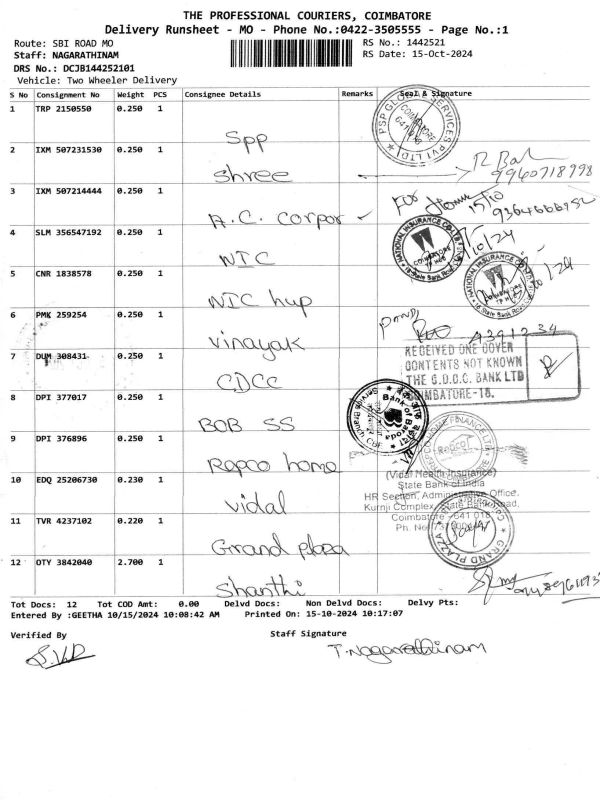 THE PROFESSIONAL COURIERS, COIMBATORE
Delivery Runsheet - MO - Phone No.:0422-3505555 - Page No.:1
Route: SBI ROAD MO
RS No.: 1442521
Staff: NAGARATHINAM
RS Date: 15-Oct-2024
DRS No.: DCJB144252101
Vehicle: Two Wheeler Delivery
S No Consignment No Weight PCS Consignee Details Remarks Seal & Signature
1 TRP 2150550 0.250 1
Spp
PSP GLOBAL SERVICES PVT LTD
COIMBATORE
2 IXM 507231530 0.250 1
Shree
9960718998
3 IXM 507214444 0.250 1
A.C. corpor
For
15/10
4 SLM 356547192 0.250 1
NIC
NATIONAL INSURANCE CO LTD
COIMBATORE
State Bank Road
10/24
5 CNR 1838578 0.250 1
NIC hup
NATIONAL INSURANCE CO LTD
State Bank Road
6 PMK 259254 0.250 1
Vinayak
7 DUM 308431 0.250 1
CDCC
RECEIVED ONE COVER
CONTENTS NOT KNOWN
THE C.D.C.C. BANK LTD
COIMBATORE-18.
8 DPI 377017 0.250 1
BOB SS
Bank of Baroda
9 DPI 376896 0.250 1
Repco home
HOME FINANCE LTD
Repco
10 EDQ 25206730 0.230 1
Vidal
(Vidal Health Insurance)
State Bank of India
HR Section, Administrative Office,
Kurnji Complex, State Bank Road,
Coimbatore - 641 018
Ph. No
11 TVR 4237102 0.220 1
Grand plaza
GRAND PLAZA
12 OTY 3842040 2.700 1
Shanthi
Tot Docs: 12 Tot COD Amt: 0.00 Delvd Docs: Non Delvd Docs: Delvy Pts:
Entered By :GEETHA 10/15/2024 10:08:42 AM Printed On: 15-10-2024 10:17:07
Verified By
Staff Signature
T. Nagarathinam